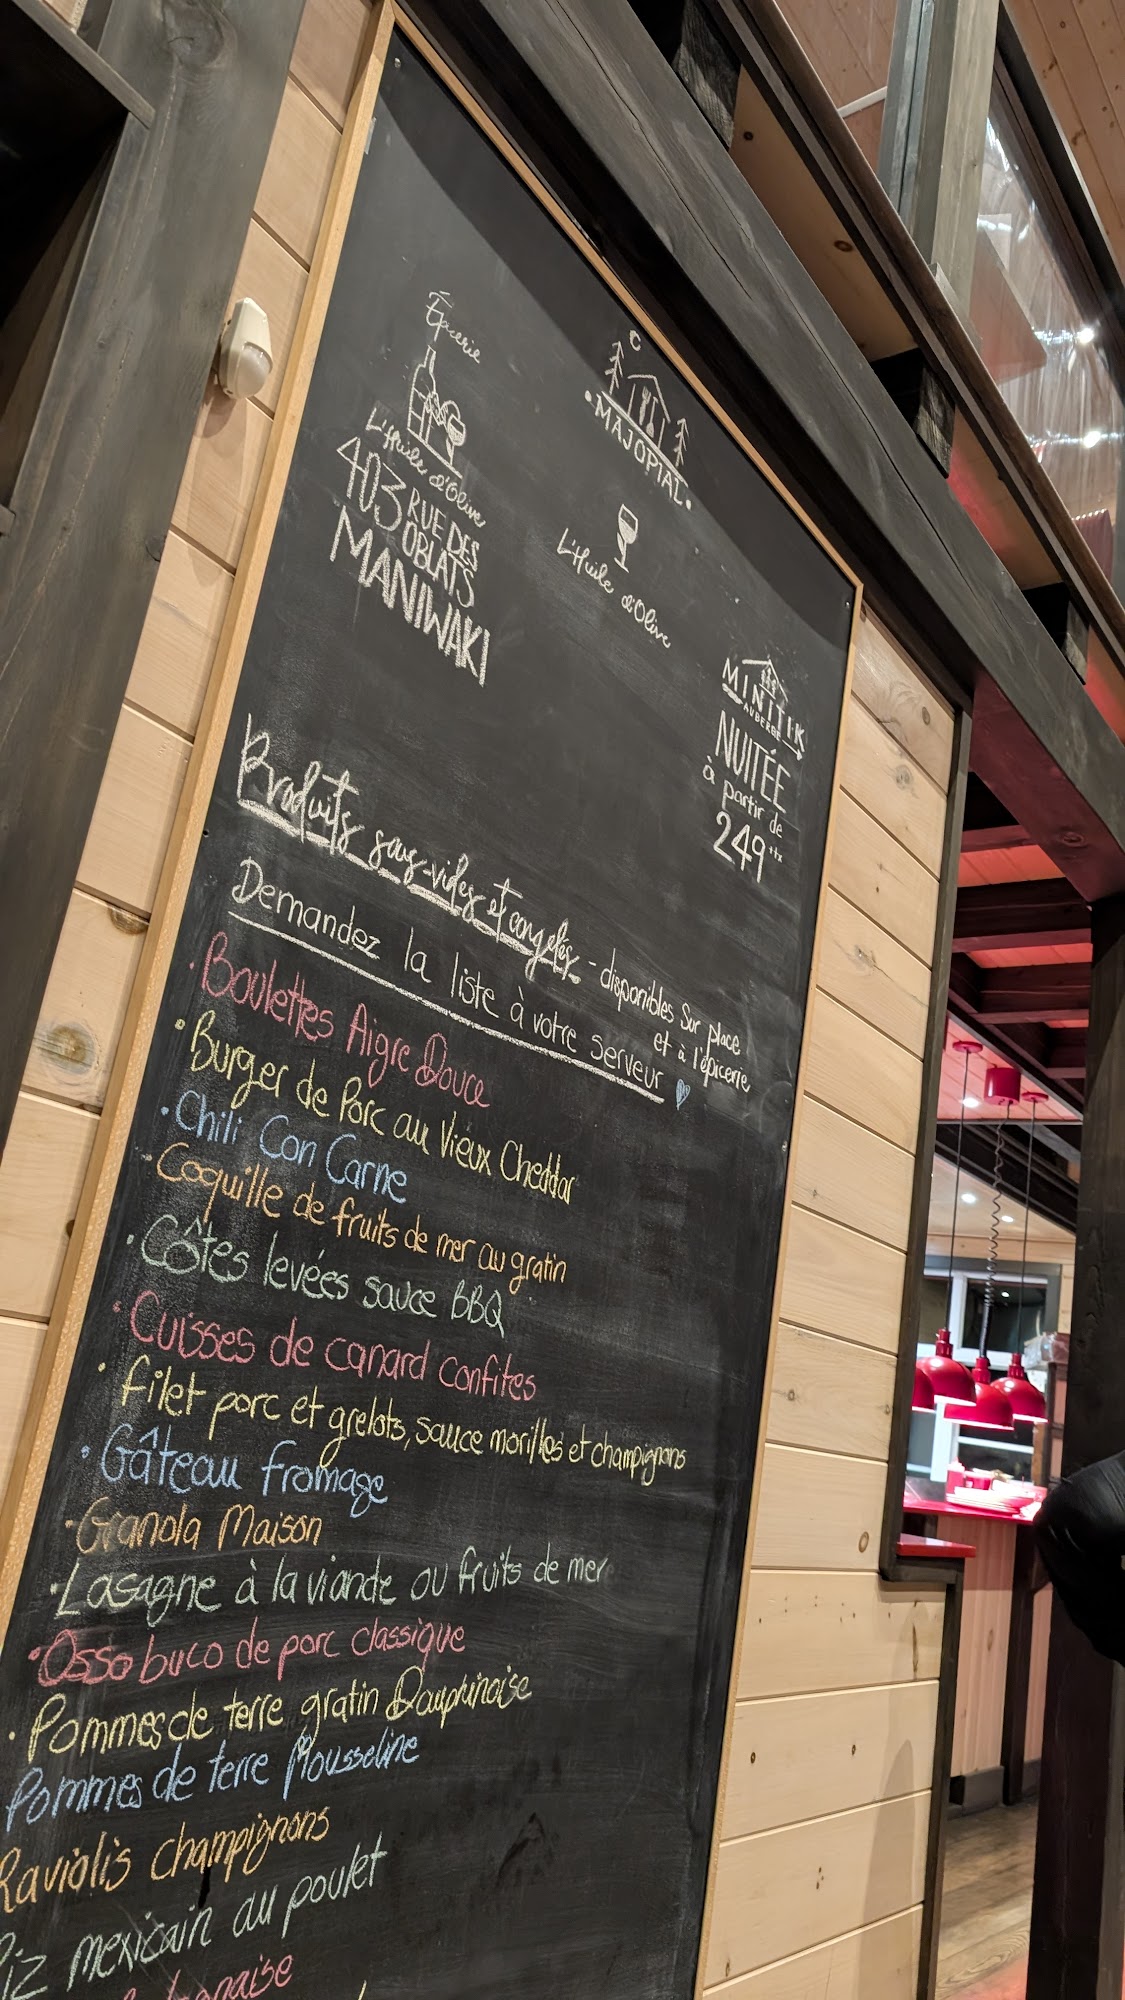 Épicerie
L'Huile d'Olive
403 RUE DES
OBLATS
MANIWAKI
•MAJOPIAL•
L'Huile d'Olive
MINITIK
AUBERGE
NUITÉE
à partir de
249 +tx
Produits sous-vides et congelés - disponibles sur place
et à l'épicerie
Demandez la liste à votre serveur
• Boulettes Aigre Douce
• Burger de Porc au Vieux Cheddar
• Chili Con Carne
• Coquille de fruits de mer au gratin
• Côtes levées sauce BBQ
• Cuisses de canard confites
• filet porc et grelots, sauce morilles et champignons
• Gâteau fromage
• Granola Maison
• Lasagne à la viande ou fruits de mer
• Osso buco de porc classique
• Pommes de terre gratin Dauphinoise
Pommes de terre Mousseline
Raviolis champignons
Riz mexicain au poulet